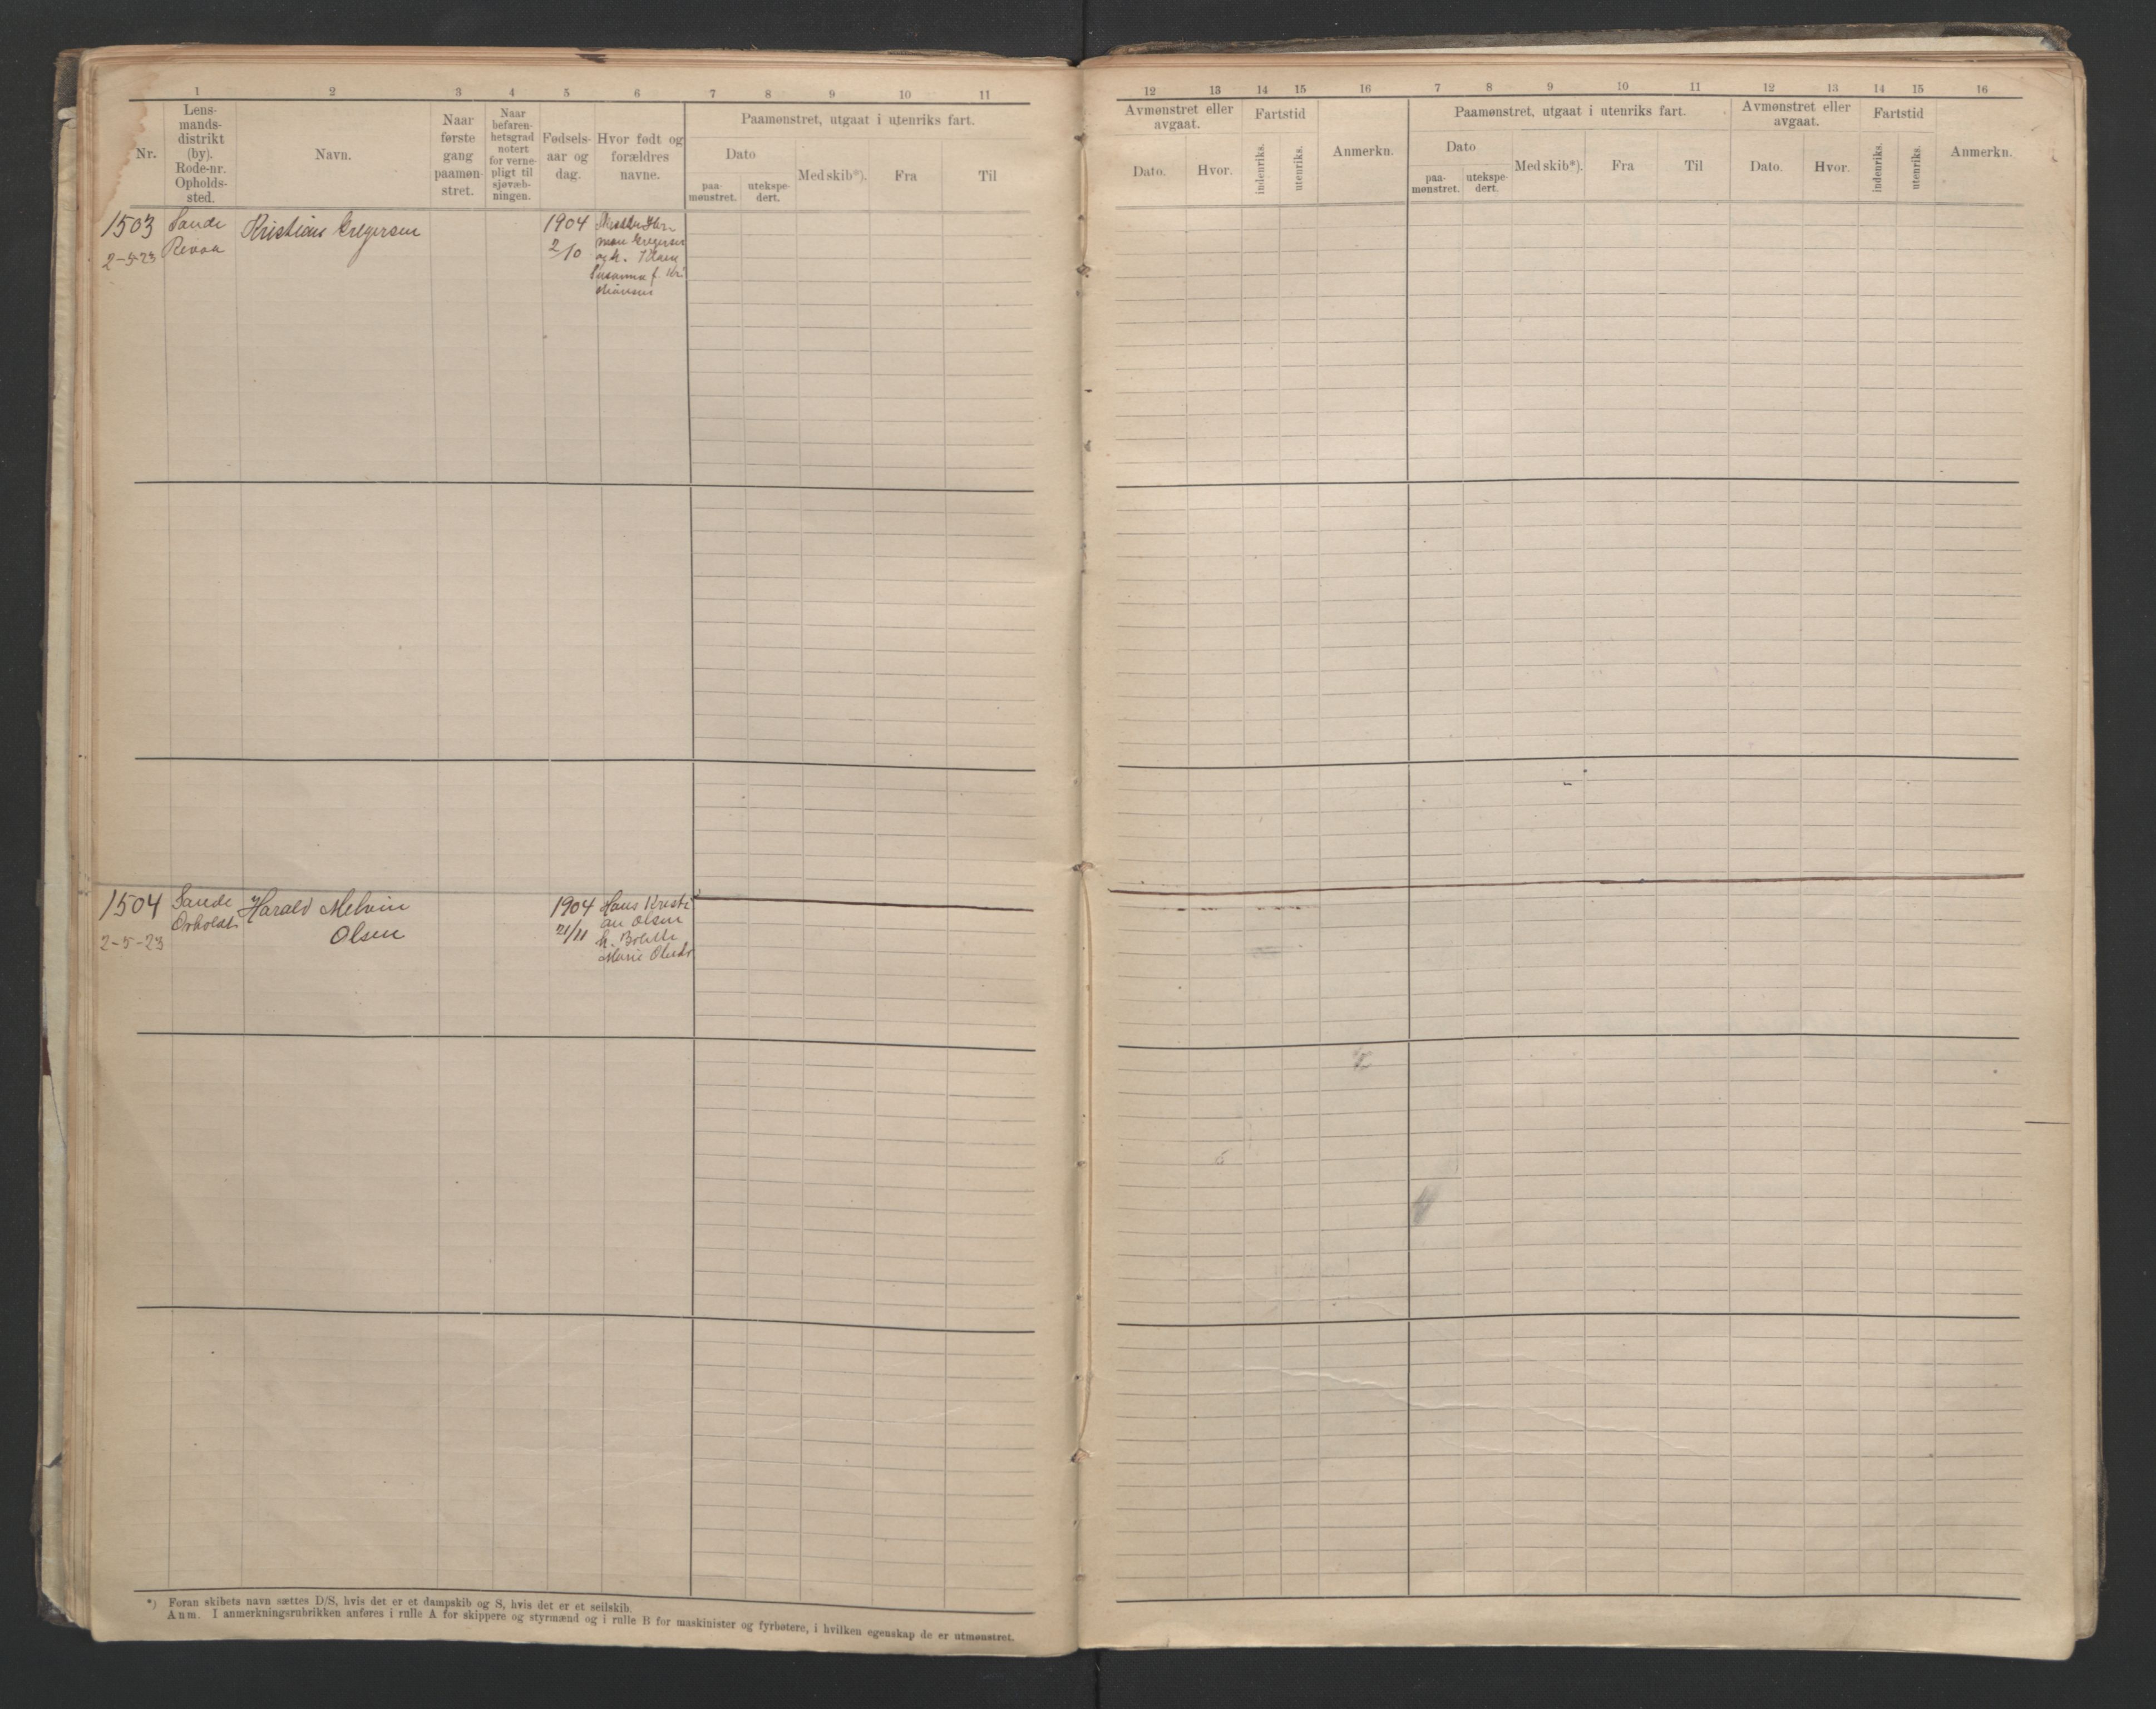 1 2 3 4 5 6 7 8 9 10 11
Nr.
Lens-
mands-
distrikt
(by).
Rode-nr.
Opholds-
sted.
Navn.
Naar
første
gang
paamøn-
stret.
Naar
befaren-
hetsgrad
notert
for verne-
pligt til
sjøvæb-
ningen.
Fødsels-
aar og
dag.
Hvor født og
forældres
navne.
Paamønstret, utgaat i utenriks fart.
Dato
paa-
mønstret.
utekspe-
dert.
Med skib*).
Fra
Til
1503
2-5-23
Sande
Revaa
Kristian Gregersen
1904
2/10
Gregersen
og h.
Susanna f. Kri
stiansen
1504
2-5-23
Sande
Harald Melvin
Olsen
1904
21/11
Hans Kristi
an Olsen
h. Bolette
Marie
*) Foran skibets navn sættes D/S, hvis det er et dampskib og S, hvis det er et seilskib.
Anm. I anmerkningsrubrikken anføres i rulle A for skippere og styrmænd og i rulle B for maskinister og fyrbøtere, i hvilken egenskap de er utmønstret.
12 13 14 15 16 7 8 9 10 11 12 13 14 15 16
Avmønstret eller
avgaat.
Dato.
Hvor.
Fartstid
indenriks.
utenriks.
Anmerkn.
Paamønstret, utgaat i utenriks fart.
Dato
paa-
mønstret.
utekspe-
dert.
Med skib*).
Fra
Til
Avmønstret eller
avgaat.
Dato.
Hvor.
Fartstid
indenriks.
utenriks.
Anmerkn.